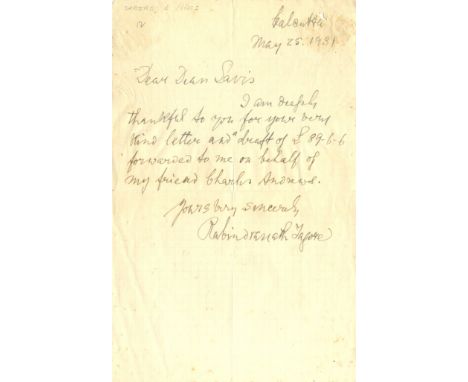 Calcutta
May 25. 1931
Dear Dean Davis
I am deeply
thankful to you for your very
kind letter and a draft of £ 89-6-6
forwarded to me on behalf of
my friend Charles Andrews.
Yours very sincerely
Rabindranath Tagore